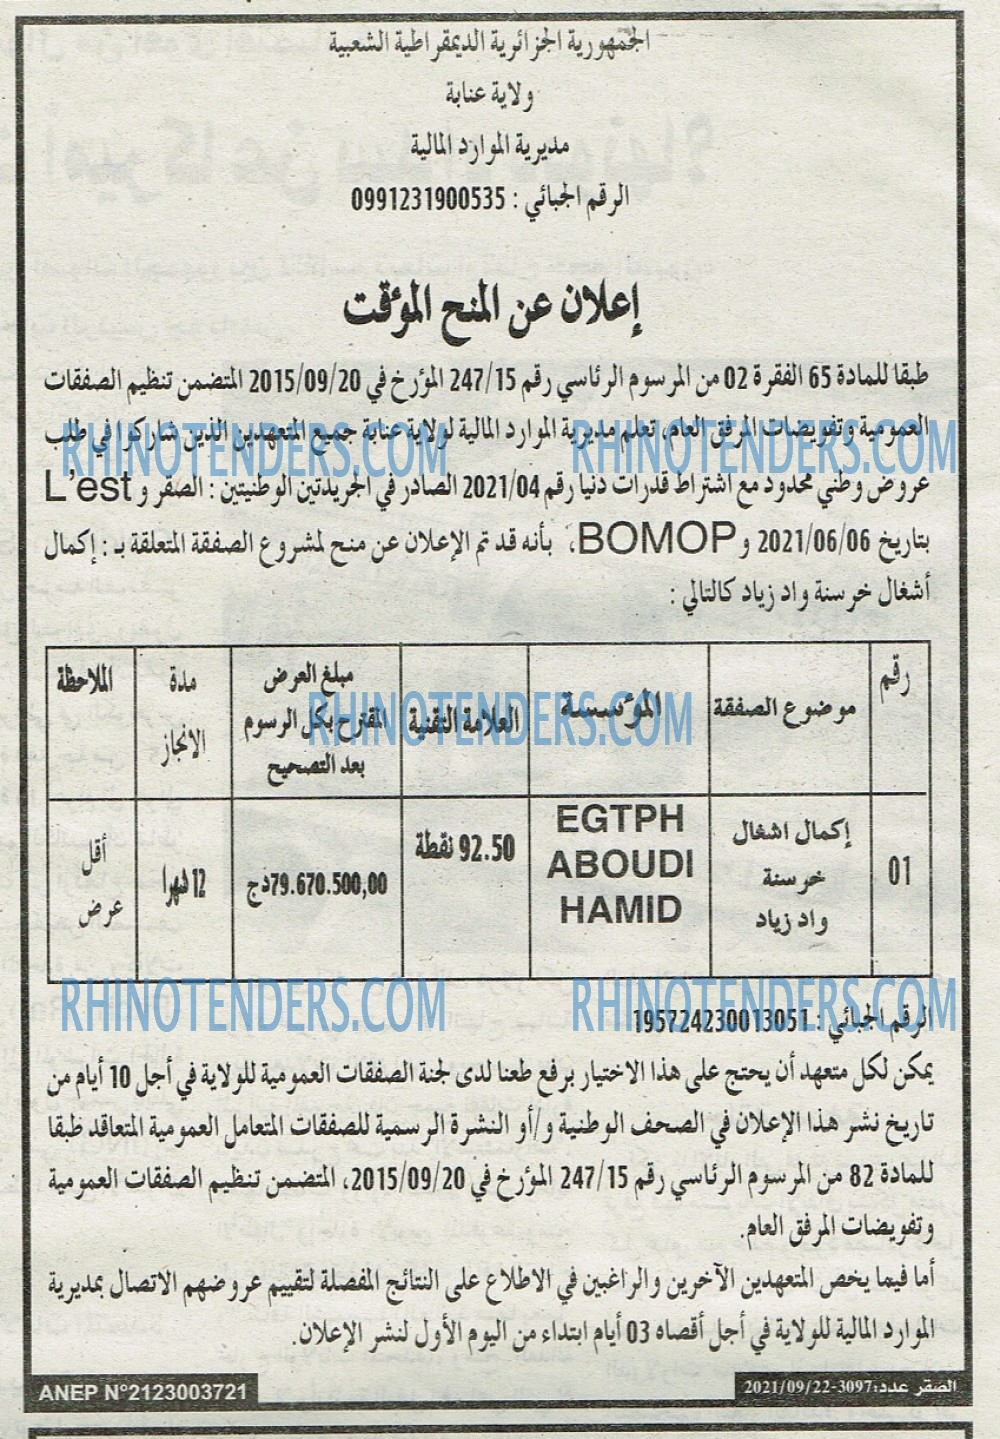 الجمهورية الجزائرية الديمقراطية الشعبية
ولاية عنابة
مديرية الموارد المالية
الرقم الجبائي : 0991231900535
إعلان عن المنح المؤقت
طبقا للمادة 65 الفقرة 02 من المرسوم الرئاسي رقم 247/15 المؤرخ في 2015/09/20 المتضمن تنظيم الصفقات
العمومية وتفويضات المرفق العام، تعلم مديرية الموارد المالية لولاية عنابة جميع المتعهدين الذين شاركوا في طلب
RHINOTENDERS.COM RHINOTENDERS.COM
عروض وطني محدود مع اشتراط قدرات دنيا رقم 2021/04 الصادر في الجريدتين الوطنيتين : الصقر و L'est
بتاريخ 2021/06/06 و BOMOP، بأنه قد تم الإعلان عن منح لمشروع الصفقة المتعلقة بـ : إكمال
أشغال خرسنة واد زياد كالتالي :
رقم موضوع الصفقة المؤسسة العلامة التقنية مبلغ العرض المقترح بكل الرسوم بعد التصحيح مدة الانجاز الملاحظة
RHINOTENDERS.COM
01 إكمال اشغال خرسنة واد زياد EGTPH ABOUDI HAMID 92.50 نقطة 79.670.500,00دج 12 شهرا أقل عرض
RHINOTENDERS.COM RHINOTENDERS.COM
الرقم الجبائي : 195724230013051
يمكن لكل متعهد أن يحتج على هذا الاختيار برفع طعنا لدى لجنة الصفقات العمومية للولاية في أجل 10 أيام من
تاريخ نشر هذا الإعلان في الصحف الوطنية و/أو النشرة الرسمية للصفقات المتعامل العمومية المتعاقد طبقا
للمادة 82 من المرسوم الرئاسي رقم 247/15 المؤرخ في 2015/09/20، المتضمن تنظيم الصفقات العمومية
وتفويضات المرفق العام.
أما فيما يخص المتعهدين الآخرين والراغبين في الاطلاع على النتائج المفصلة لتقييم عروضهم الاتصال بمديرية
الموارد المالية للولاية في أجل أقصاه 03 أيام ابتداء من اليوم الأول لنشر الإعلان.
الصقر عدد:3097-2021/09/22
ANEP N°2123003721